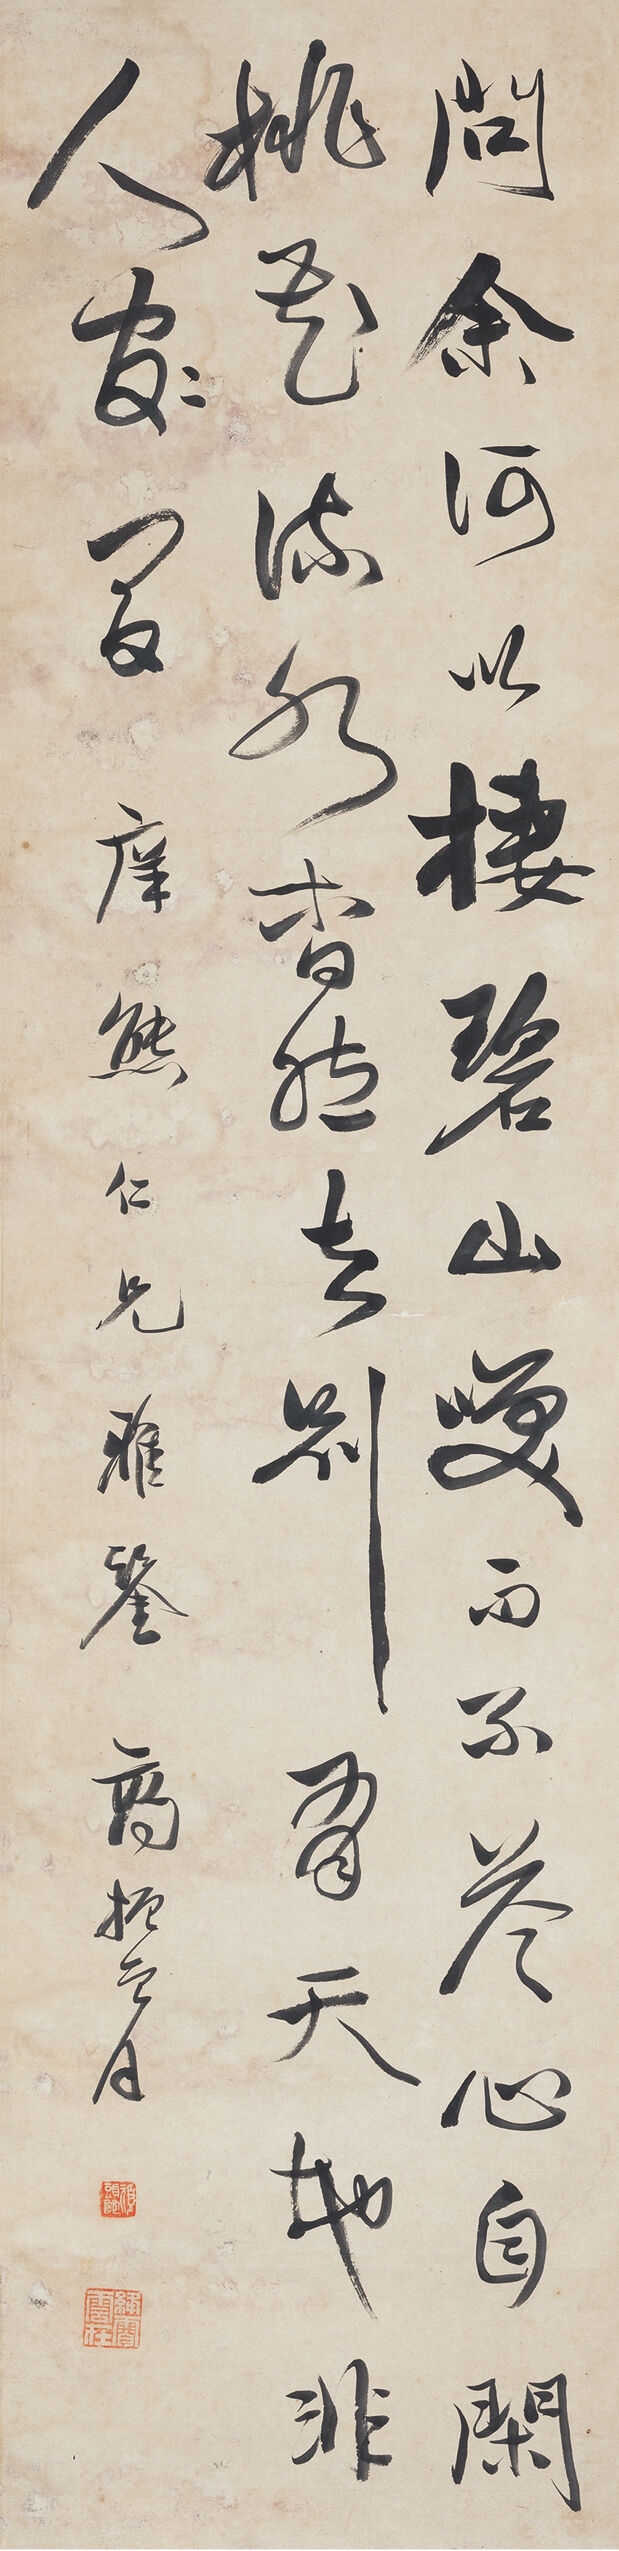 問余何以棲碧山笑而不答心自閑
桃花流水杳然去別有天地非
人家
仁兄雅鑒